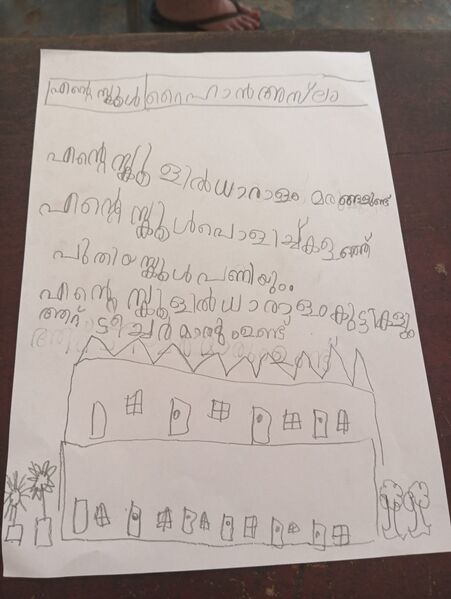 എന്റെ സ്കൂൾ റൈഹാൻ അസ്ലാ
എന്റെ സ്കൂളിൽ ധാരാളം മരങ്ങളുണ്ട്
എന്റെ സ്കൂൾ പൊളിച്ച് കളഞ്ഞ്
പുതിയ സ്കൂൾ പണിയും.
എന്റെ സ്കൂളിൽ ധാരാളം കുട്ടികളും
ടീച്ചർമാരും ഉണ്ട്